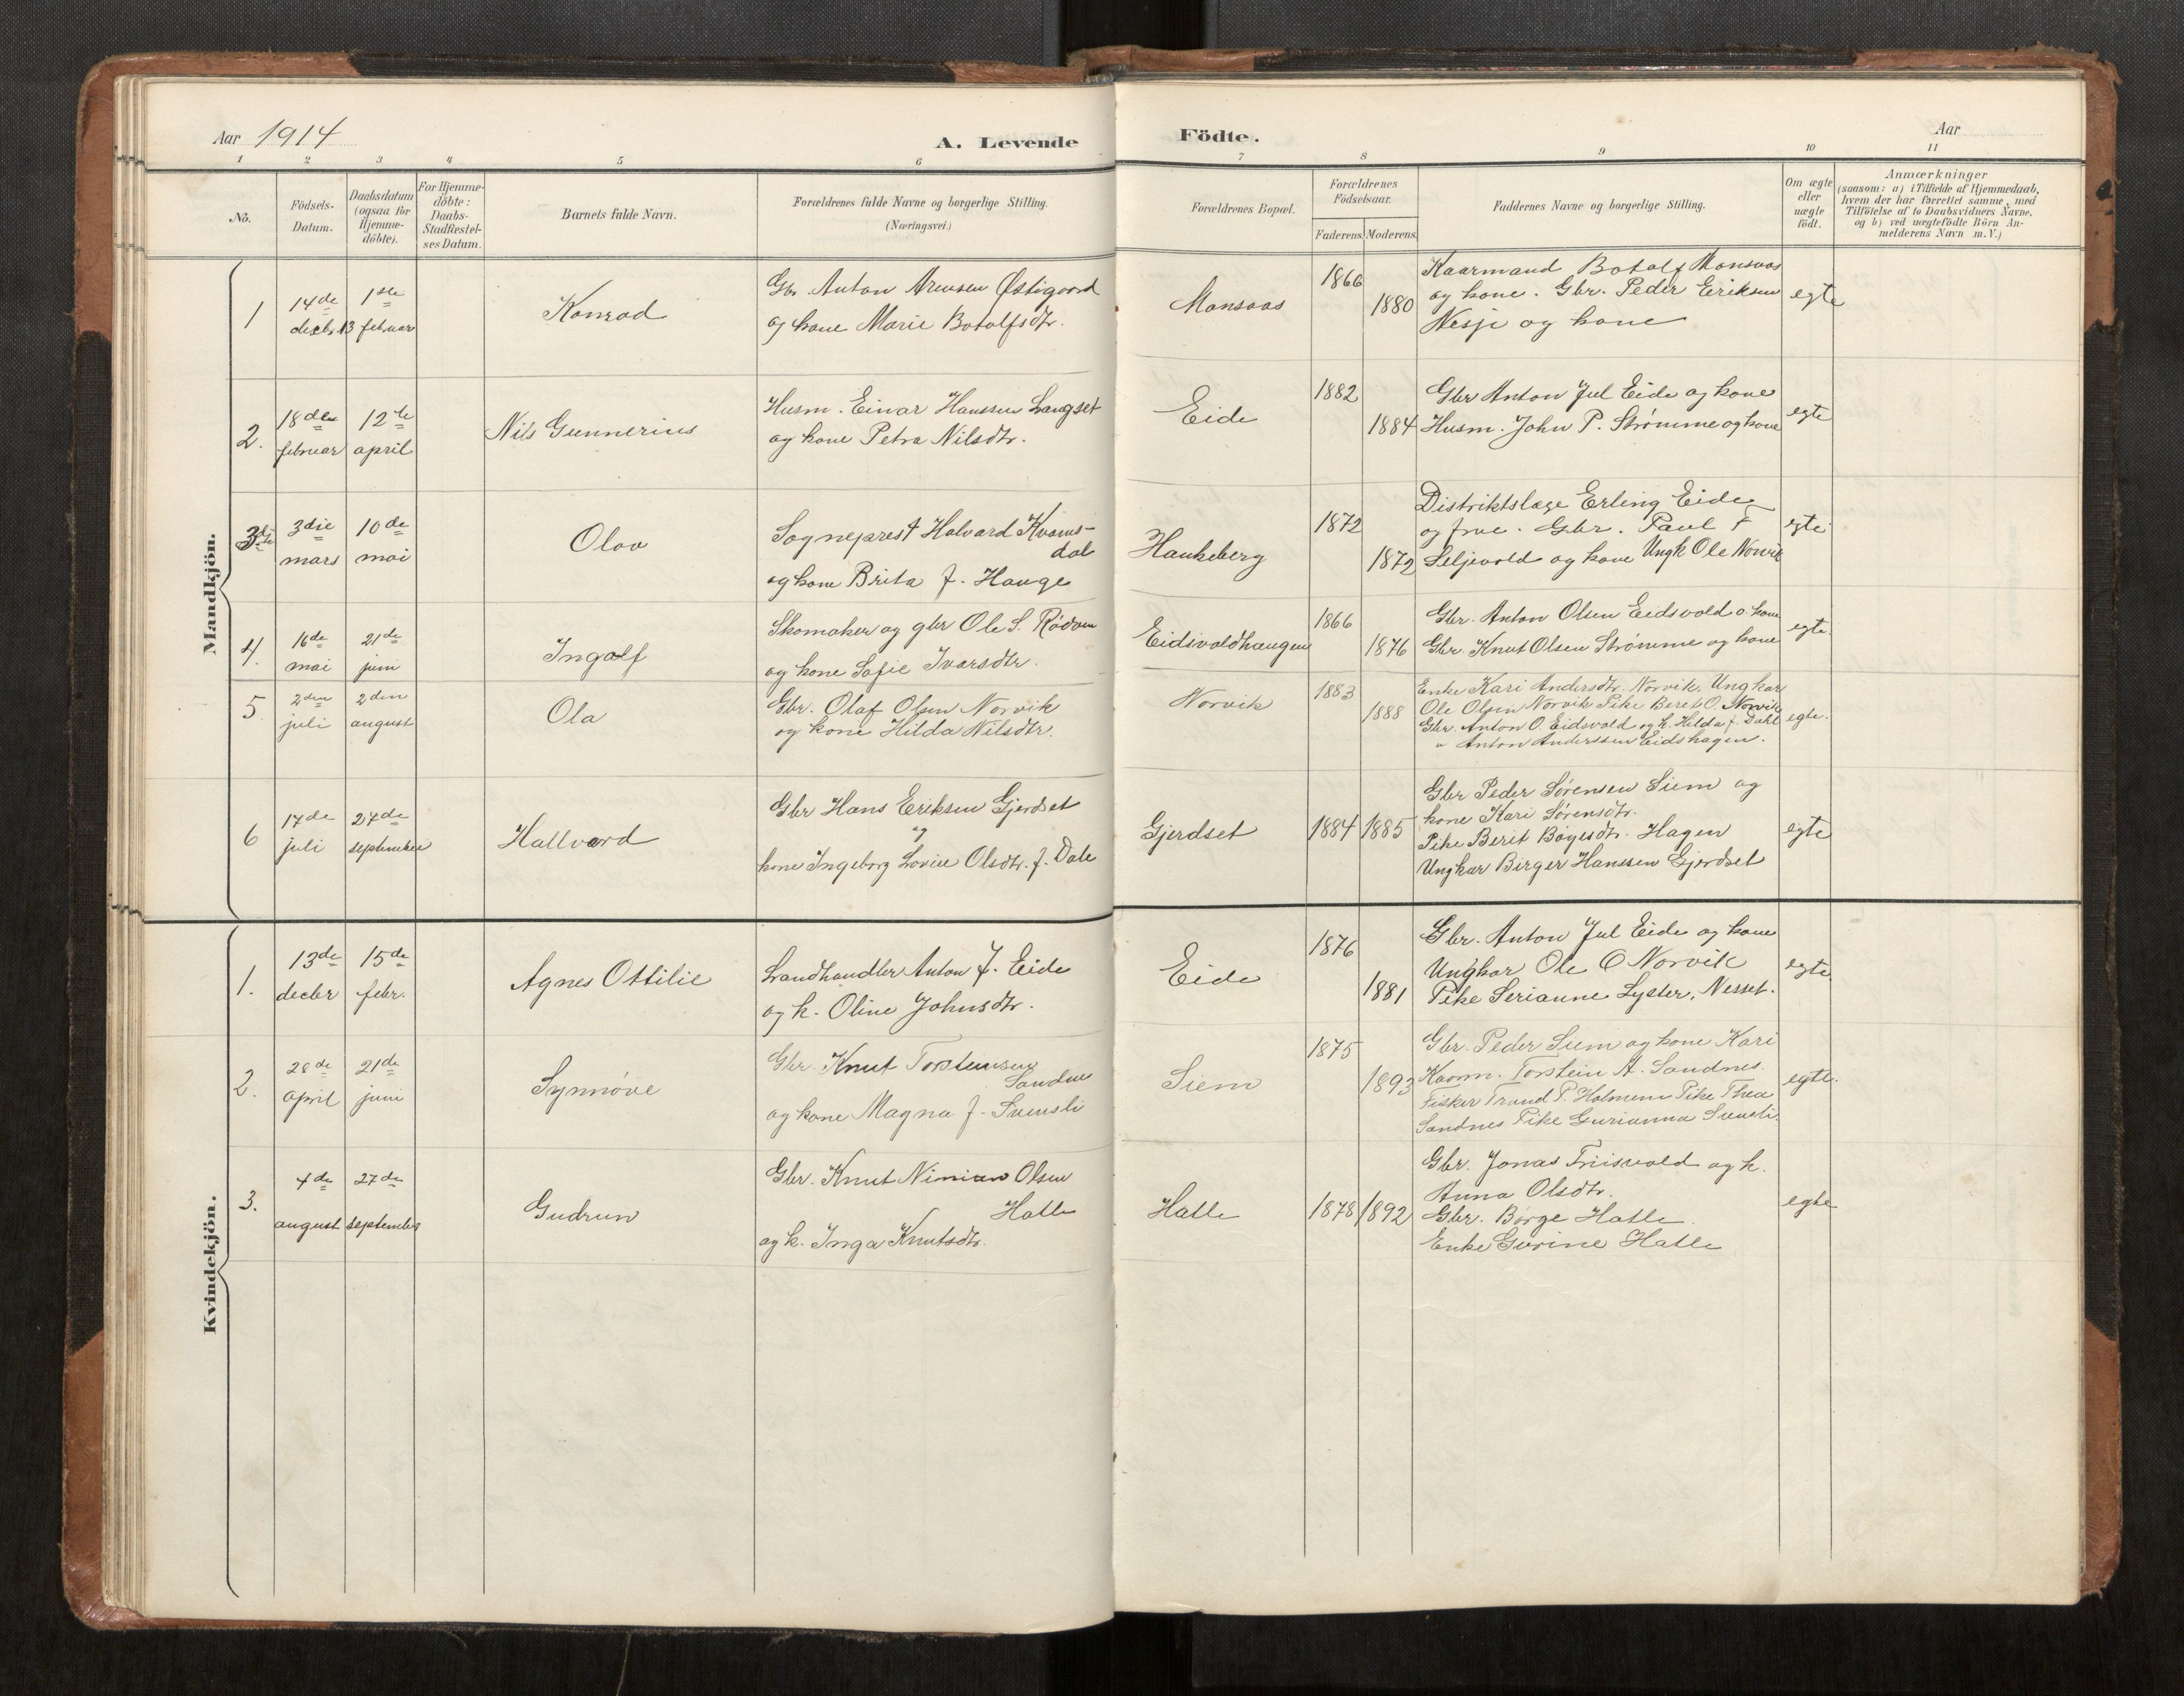 Aar 1914
A. Levende
Födte.
Aar
1 2 3 4 5 6 7 8 9 10 11
No.
Födsels-Datum.
Daabsdatum (ogsaa for Hjemme-döbte).
For Hjemme-döbte: Daabs-Stadfæstel-ses Datum.
Barnets fulde Navn.
Forældrenes fulde Navne og borgerlige Stilling.
(Næringsvei.)
Forældrenes Bopæl.
Forældrenes Födselsaar.
Faderens. Moderens.
Faddernes Navne og borgerlige Stilling.
Om ægte eller uægte födt.
Anmærkninger
(saasom: a) i Tilfælde af Hjemmedaab, hvem der har forrettet samme, med Tilföielse af to Daabsvidners Navne, og b) ved uægtefödte Börn An-melderens Navn m.V.)
Mandkjön.
1
14de decbr 13
1ste februar
Konrad
Gbr. Anton Arensen Østigaard
og kone Marie Botolfsdtr.
Monsaas
1866
1880
Kaarmand Botolf Monsaas
og kone. Gbr. Peder Eriksen
Nesje og kone
egte
2.
18de februar
12te april
Nils Gunnerius
Husm. Einar Hanssen Langset
og kone Petra Nilsdtr.
Eide
1882
1884
Gbr Anton Jul Eide og kone
Husm. John P. Strømme og kone
egte
3
3die mars
10de mai
Olov
Sogneprest Halvard Kvams-
dal
og kone Brita f. Hauge
Haukeberg
1872
1872
Distriktslæge Erling Eide
og frue. Gbr. Paul T
Seljevold og kone Ungk Ole Norvik
egte
4.
16de mai
21de juni
Ingolf
Skomaker og gbr Ole S. Rødven
og kone Sofie Ivarsdtr.
Eidsvoldhaugen
1866
1876
Gbr. Anton Olsen Eidsvold o. kone
Gbr. Knut Olsen Strømme og kone
egte.
5
2den juli
2den august
Ola
Gbr. Olaf Olsen Norvik
og kone Hilda Nilsdtr.
Norvik
1883
1888
Enke Kari Andersdtr. Norvik, Ungkar
Ole Olsen Norvik Pike Beret O. Norvik
Gbr. Anton O. Eidsvold og k. Hilda f. Dahl
" Anton Anderssen Eidshagen.
egte.
6
17de juli
27de september
Hallvard
Gbr Hans Eriksen Gjerdset
og
kone Ingeborg Lovise Olsdtr. f. Dale
Gjerdset
1884
1885
Gbr Peder Sørensen Siem og
kone Kari Sørensdtr.
Pike Berit Bøyesdtr. Hagen
Ungkar Birger Hanssen Gjerdset
egte
Kvindekjön.
1.
13de decbr
15de febr.
Agnes Ottilie
Landhandler Anton J. Eide
og k. Oline Johnsdtr.
Eide
1876
1881
Gbr. Anton Jul Eide og kone
Ungkar Ole O Norvik
Pike Serianne Lyster, Nesset.
egte
2.
28de april
21de juni
Synnøve
Gbr. Knut Torsteinsen
Sandnes
og kone Magna f. Svensli
Siem
1875
1893
Gbr. Peder Siem og kone Kari
Kaarm. Torstein A. Sandnes.
Fisker Trond P. Holmem Pike Thea
Sandnes Pike Gurianna Svensli.
egte.
3.
4de august
27de september
Gudrun
Gbr. Knut Ninian Olsen
Hatle
og k. Inga Knutsdtr.
Hatle
1878
1892
Gbr. Jonas Friisvold og k.
Anna Olsdtr.
Gbr. Børge Hatle.
Enke Gurine Hatle
egte